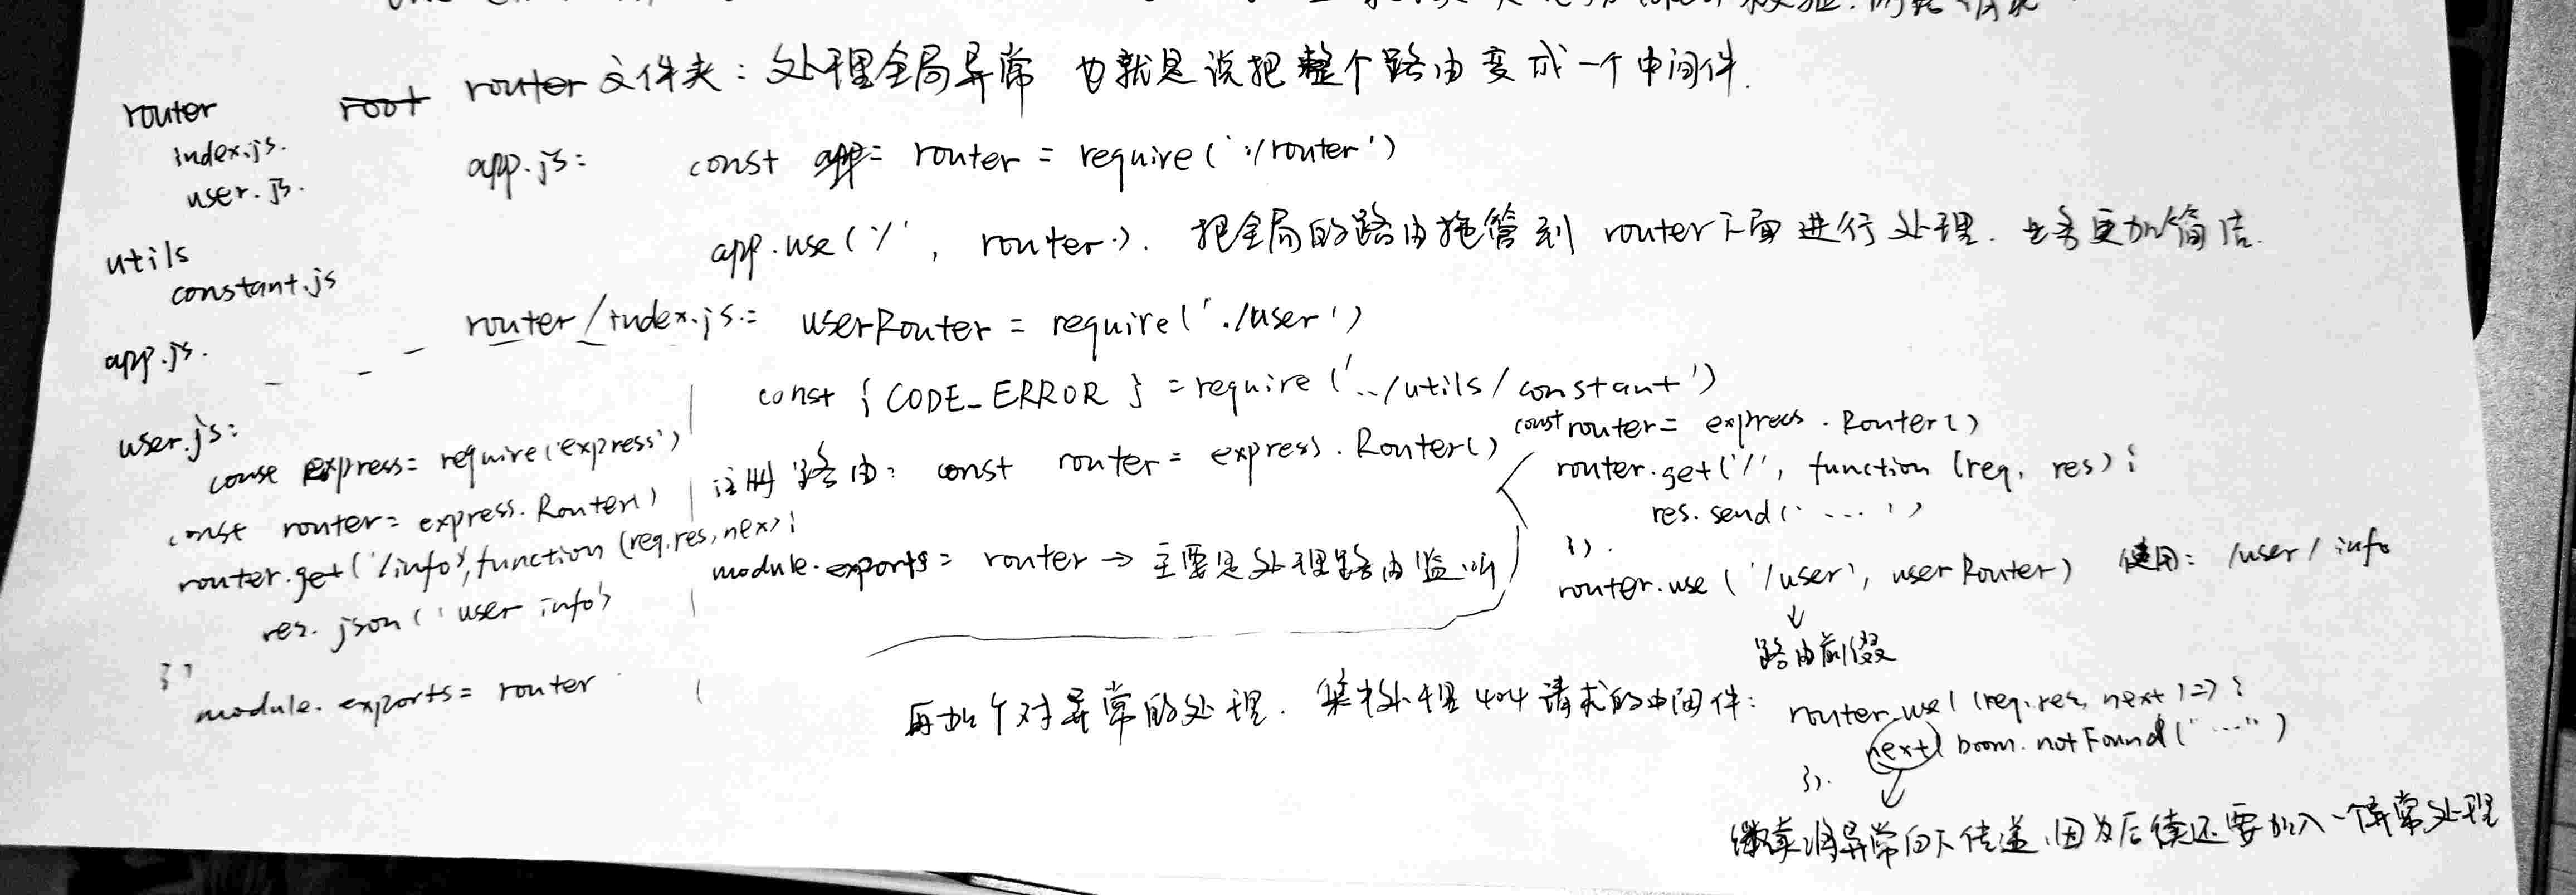 router 文件夹：处理全局异常 也就是说把整个路由变成一个中间件.
router
index.js.
user.js.
utils
constant.js
app.js.
app.js: const router = require('./router')
app.use('/', router). 把全局的路由拖管到 router下面进行处理. 更加简洁.
router/index.js: userRouter = require('./user')
const { CODE_ERROR } = require('../utils/constant')
注册路由: const router = express.Router()
module.exports = router → 主要是处理路由监听
user.js:
express = require('express')
const router = express.Router()
router.get('/info', function (req, res, next) {
res.json('user info')
})
module.exports = router
const router = express.Router()
router.get('/', function (req, res) {
res.send('....')
}).
router.use('/user', userRouter) 使用: /user/info
↓
路由前缀
再加个对异常的处理. 集中处理404请求的中间件: router.use((req, res, next) => {
next(boom.notFound("....")
}).
继续将异常向下传递,因为后续还要加入一个异常处理